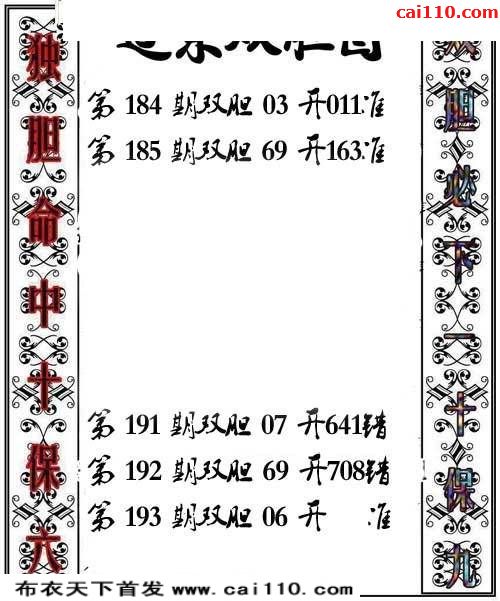 cai110.com
独胆命中十保六
第 184 期双胆 03 开011准
第 185 期双胆 69 开163准
第 191 期双胆 07 开641错
第 192 期双胆 69 开708错
第 193 期双胆 06 开 准
胆必下一十保九
布衣天下首发 www.cai110.com